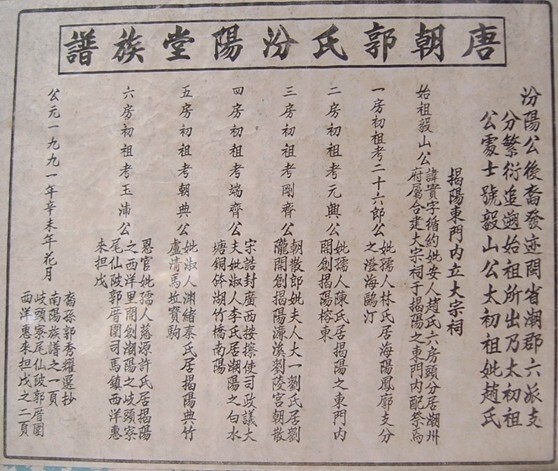 唐朝郭氏汾陽堂族譜
汾陽公後裔發迹閩省潮郡六派支
分繁衍追遡始祖所出乃太初祖
公處士號毅山公太初祖妣趙氏
揭陽東門內立大宗祠
始祖毅山公諱實字循約妣安人趙氏六房頭分居潮州
府屬合建大宗祠于揭陽之東門內配祭焉
一房初祖考二十六郎公妣孺人林氏居海陽鳳廓支分
之澄海鷗汀
二房初祖考元興公妣孺人陳氏居揭陽之東門內
開創揭陽榕東
三房初祖考剛齊公朝散郎妣夫人大一劉氏居劉
隴開創揭陽濠溪劉陵宮朝散
四房初祖考端齊公宋誥封廣西按擦使司政議大
夫妣淑人李氏居潮陽之白水
塘銅鉢湖竹橋南陽
五房初祖考朝典公妣淑人淵緒秦氏居揭陽典竹
盧清馬坵寶駒
六房初祖考玉浦公恩官妣孺人蔭源許氏居揭陽
之西洋里開創潮陽之岐頭寮
尾仙陂郭厝圍司馬鎮西洋惠
来担戊
公元一九九一年辛未年花月
裔孫郭秀耀選抄
南陽族譜之一頁
岐頭寮尾仙陂郭厝圍
西洋惠来担戊之二頁